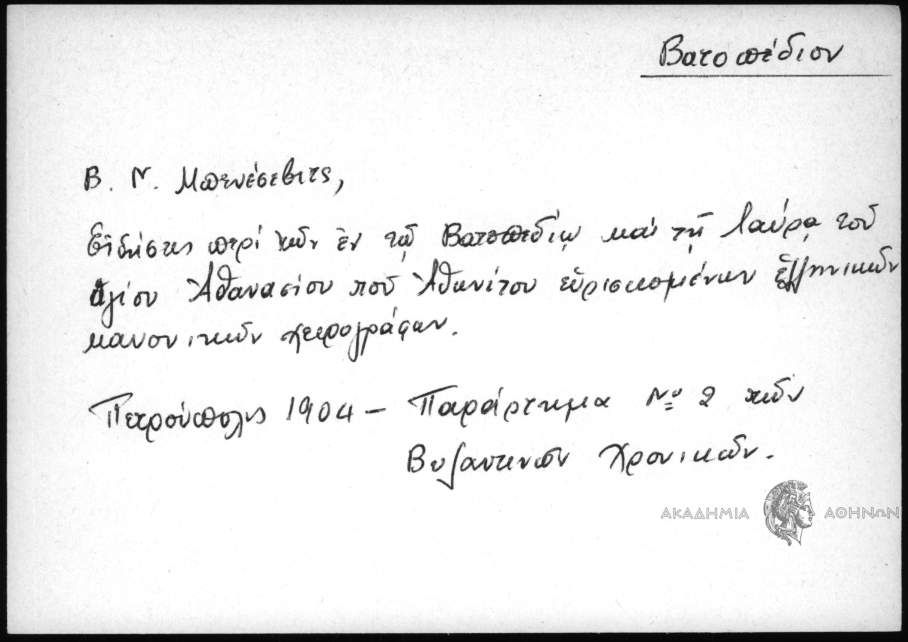 Βατοπέδιον
Β. Ν. Μπενέσεβιτς,
Εἰδήσεις περί τῶν ἐν τῷ Βατοπεδίῳ καί τῇ Λαύρᾳ τοῦ
Ἁγίου Ἀθανασίου τοῦ Ἀθωνίτου εὑρισκομένων ἑλληνικῶν
κανονικῶν χειρογράφων.
Πετρούπολις 1904 – Παράρτημα Νο 2 τῶν
Βυζαντινῶν Χρονικῶν.
ΑΚΑΔΗΜΙΑ ΑΘΗΝΩΝ